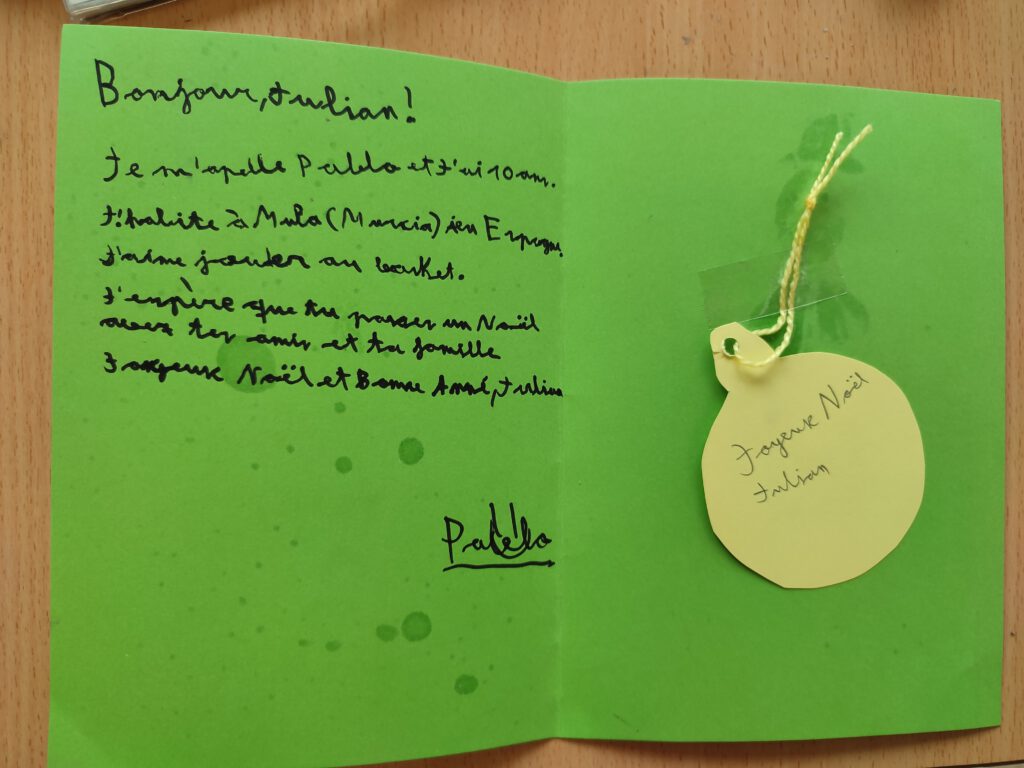 Bonjour, Julian!
Je m'apelle Pablo et J'ai 10 ans.
J'habite à Mula (Murcia) en Espagne
J'aime jouer au basket.
J'espère que tu passes un Noël
avec tes amis et ta famille
Joyeux Noël et Bonne Anné, Julian
Pablo
Joyeux Noël
Julian